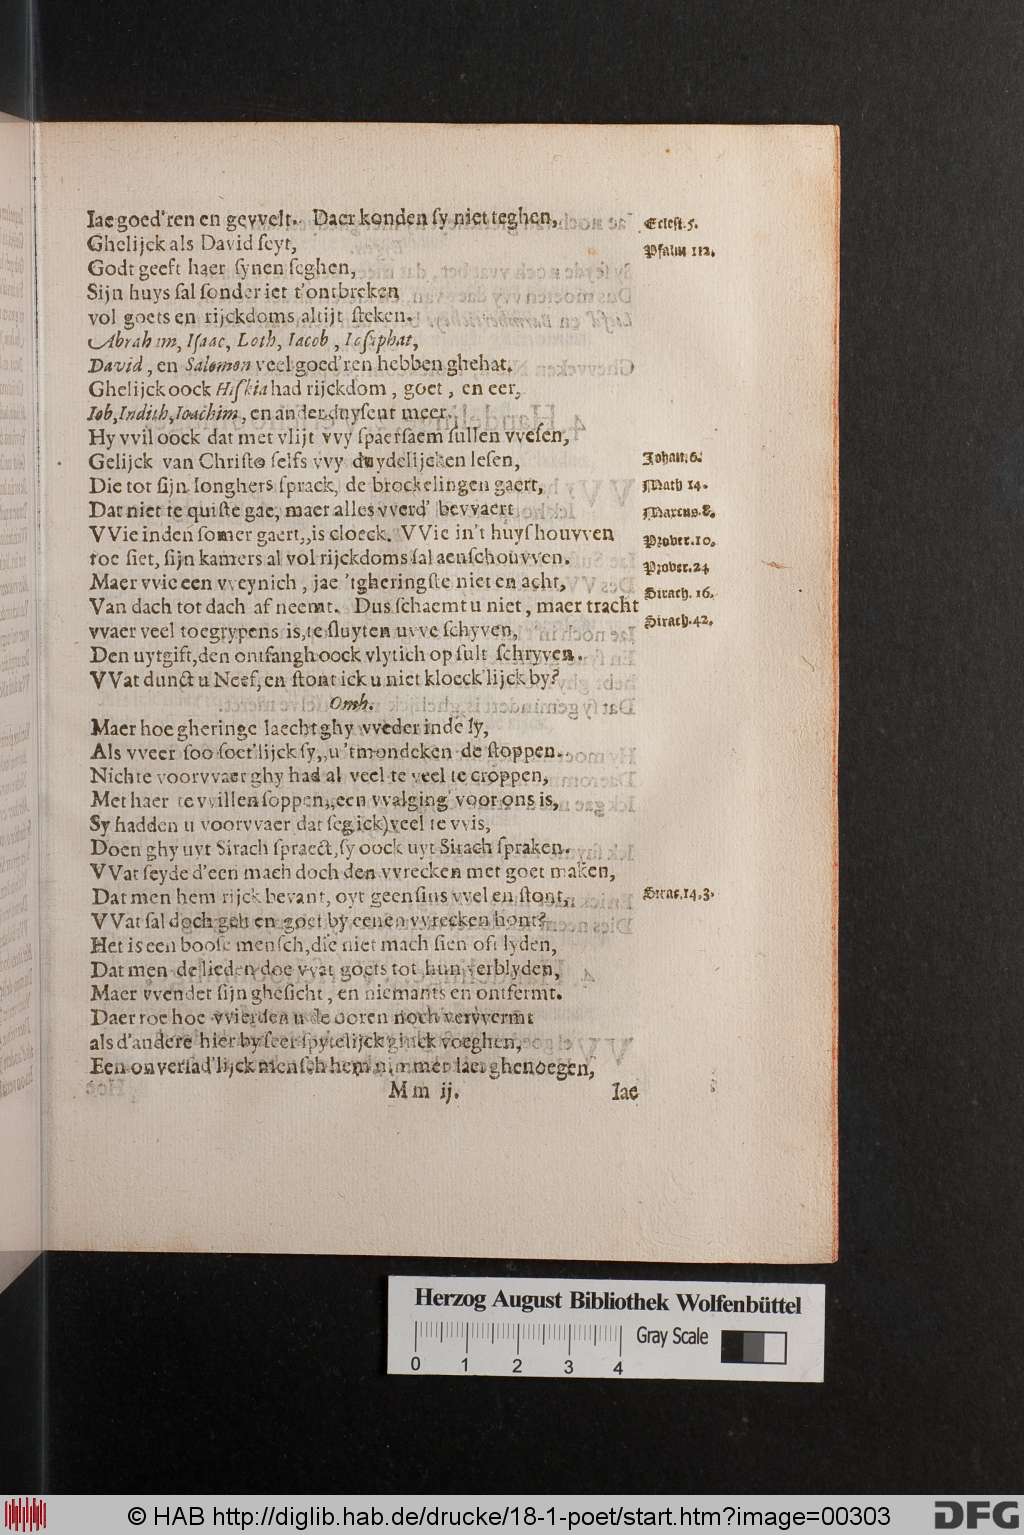 Iae goed'ren en gevvelt. Daer konden ſy niet teghen,
Eclest. 5.
Ghelijck als David ſeyt,
Psalm 112.
Godt geeft haer ſynen ſeghen,
Sijn huys ſal ſonder iet t'ontbreken
vol goets en rijckdoms altijt ſteken.
Abraham, Iſaac, Loth, Iacob, Ioſaphat,
David, en Salomon veel goed'ren hebben ghehat.
Ghelijck oock Hiſkia had rijckdom, goet, en eer,
Iob, Indith, Ioachim, en ander duyſent meer.
Hy vvil oock dat met vlijt vvy ſpaerſaem ſullen vveſen,
Gelijck van Chriſto ſelfs vvy duydelijcken leſen,
Johan. 6.
Die tot ſijn Ionghers ſprack, de brockelingen gaert,
Math 14.
Dat niet te quiſte gae, maer alles vverd' bevvaert
Marcus. 8.
VVie in den ſomer gaert, is cloeck. VVie in't huyſhouvven
Prover. 10.
toe ſiet, ſijn kamers al vol rijckdoms ſal aenſchouvven.
Prover. 24
Maer vvie een vveynich, jae 'tgheringſte niet en acht,
Sirach. 16.
Van dach tot dach af neemt. Dus ſchaemt u niet, maer tracht
Sirach. 42.
vvaer veel toegrypens is, te ſluyten uvve ſchyven,
Den uytgift, den ontfangh oock vlytich op ſult ſchryven.
VVat dunct u Neef, en ſtont ick u niet kloeck'lijck by?
Omh.
Maer hoe gheringe laecht ghy vveder inde ly,
Als vveer ſoo ſoet'lijck ſy, u 'tmondeken de ſtoppen.
Nichte voorvvaer ghy had al veel te veel te croppen,
Met haer te vvillen ſoppen, een vvalging' voor ons is,
Sy hadden u voorvvaer dat ſeg ick) veel te vvis,
Doen ghy uyt Sirach ſpraect, ſy oock uyt Sirach ſpraken.
VVat ſeyde d'een mach doch den vvrecken met goet maken,
Dat men hem rijck bevant, oyt geenſins vvel en ſtont,
Sirac. 14. 3.
VVat ſal doch gelt en goet by eenen vvrecken hont?
Het is een booſe menſch, die niet mach ſien oft lyden,
Dat men de lieden doe vvat goets tot hun verblyden,
Maer vvendet ſijn gheſicht, en niemants en ontfermt.
Daer toe hoe vvierden u de ooren noch vervvermt
als d'andere hier by ſeer ſpytelijck ginck voeghen,
Een onverſad'lijck menſch hem nimmer laet ghenoegen,
Mm ij.
Iae
Herzog August Bibliothek Wolfenbüttel
Gray Scale
0 1 2 3 4
© HAB http://diglib.hab.de/drucke/18-1-poet/start.htm?image=00303
DFG